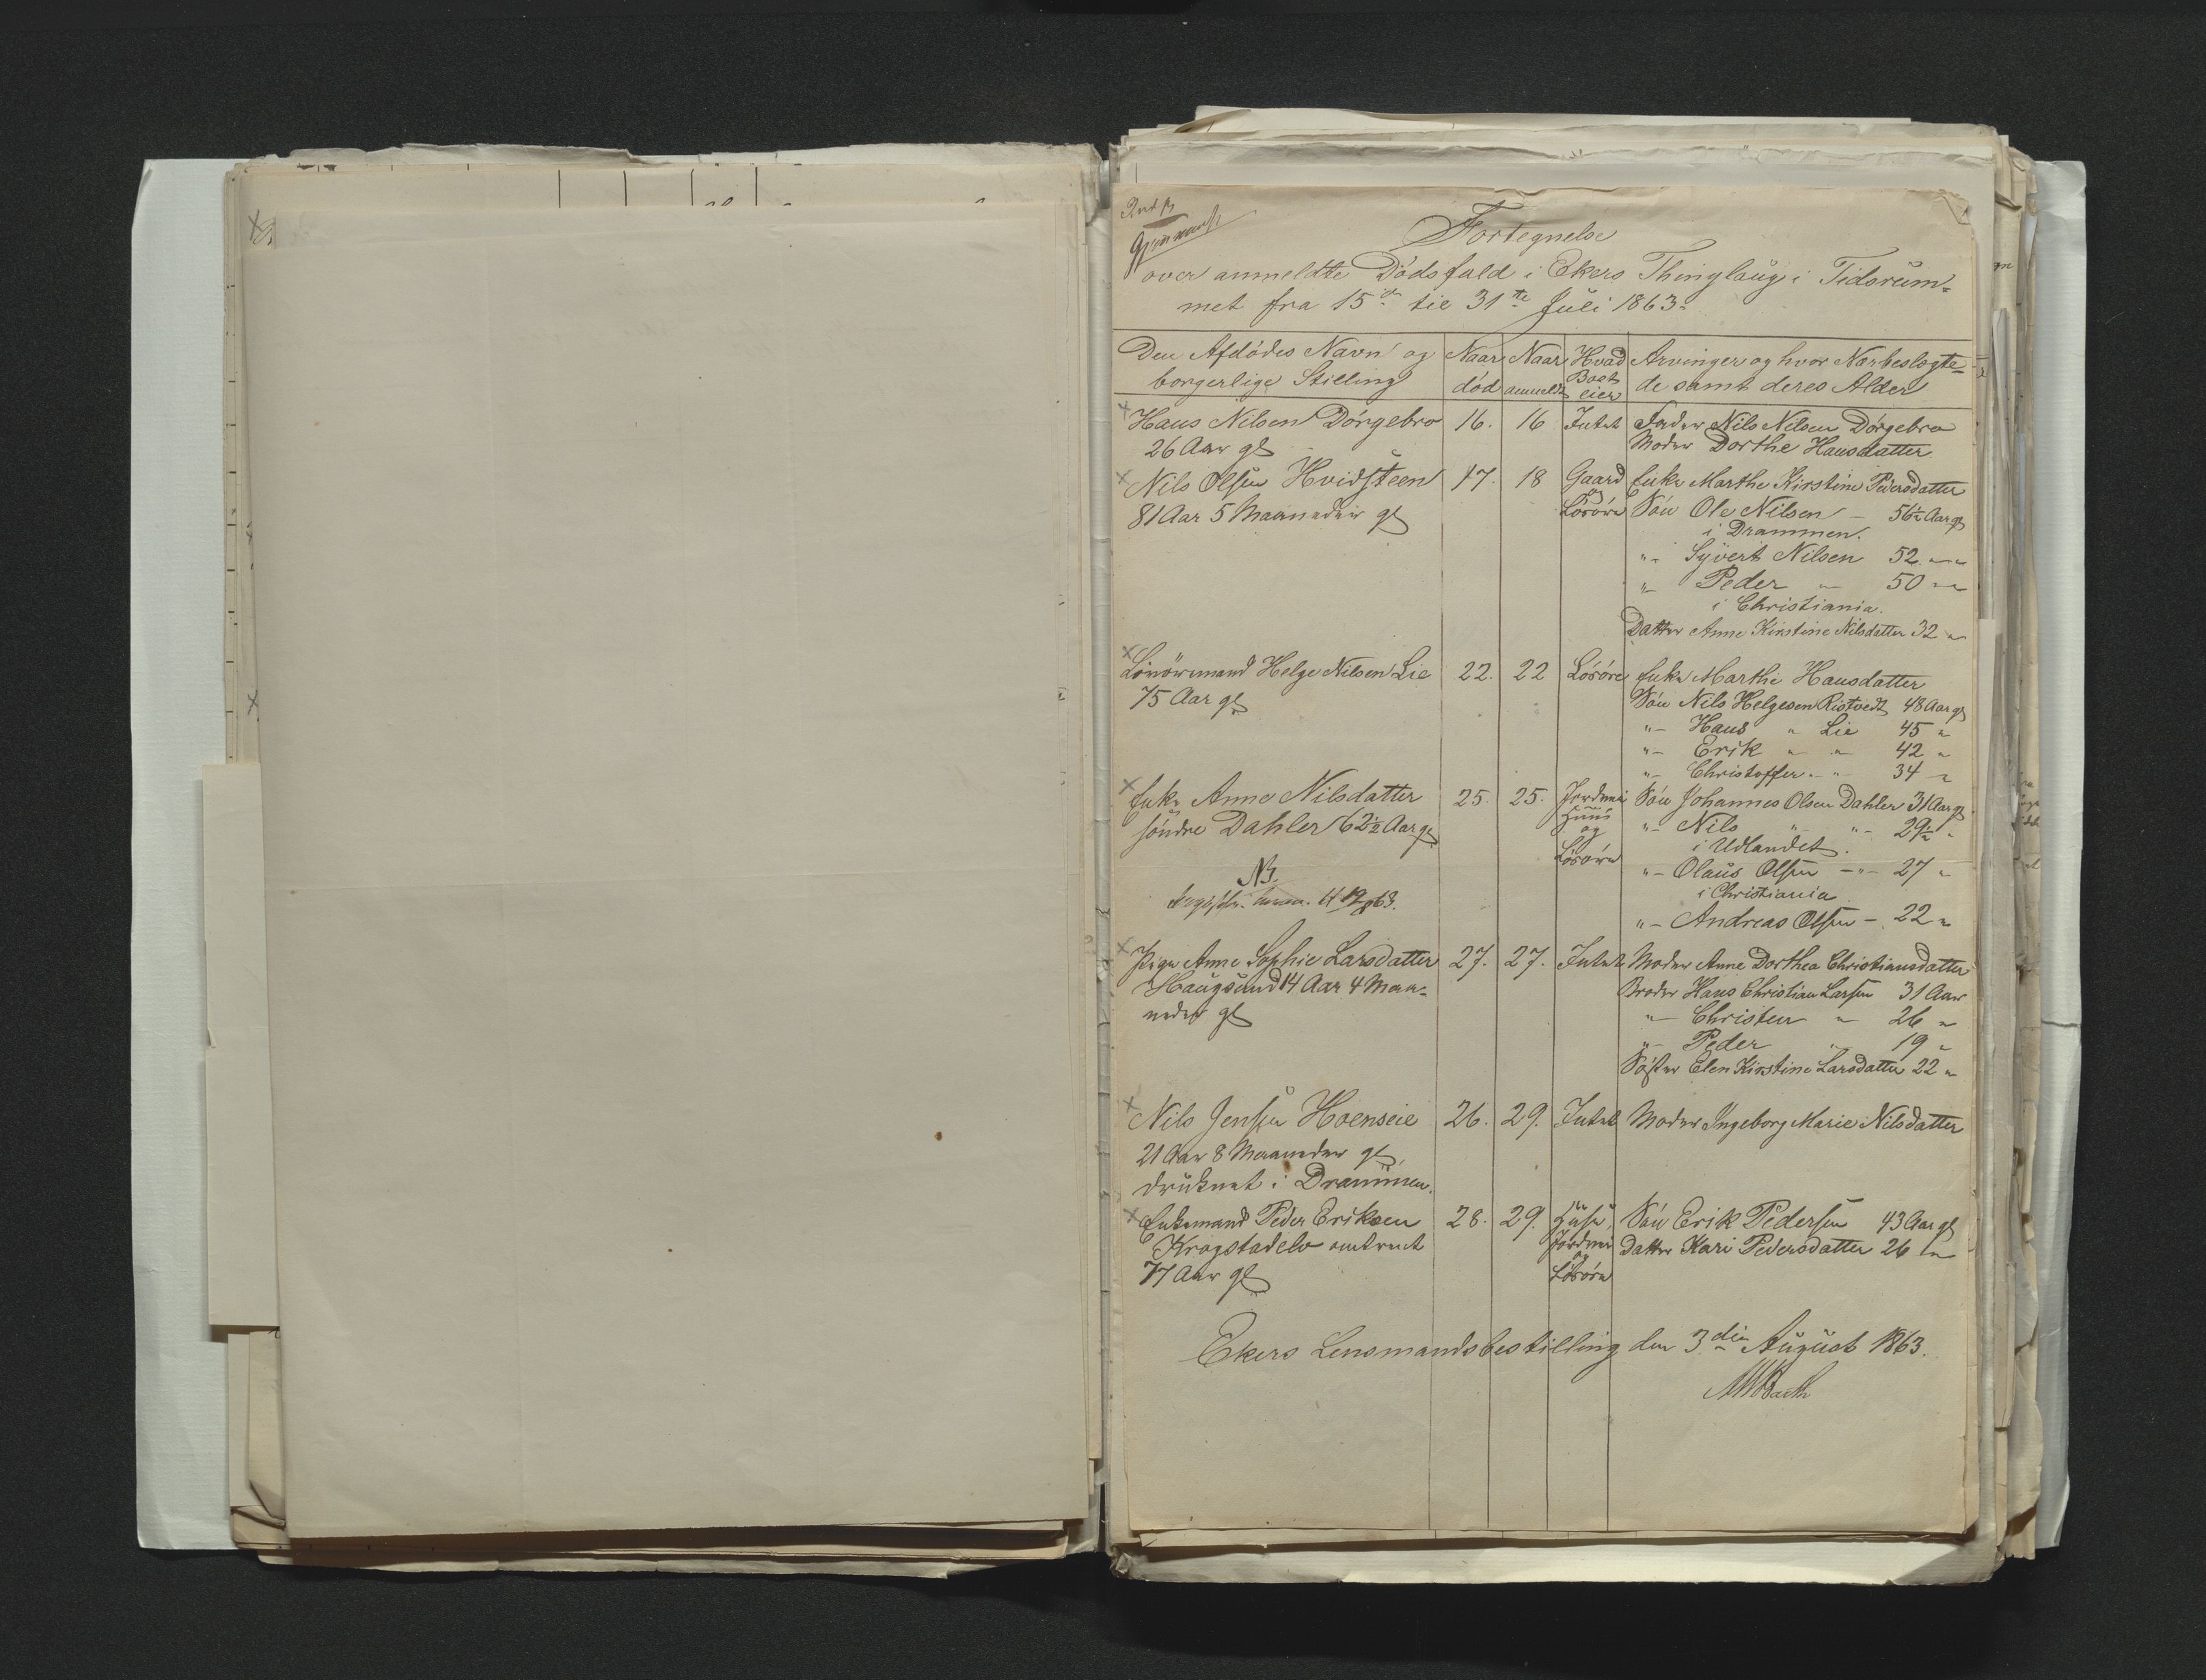 Fortegnelse
over anmeldte Dödsfald i Ekers Thinglaug i Tidsrum-
met fra 15de til 31te Juli 1863.
Den Afdödes Navn og borgerlige Stilling
Naar död
Naar anmeldt
Hvad Boet eier
Arvinger og hvor Nærbeslegte-
de samt deres Alder
Hans Nilsen Dörgebro 16. 16 Intet Fader Nils Nilsen Dörgebro
26 Aar gl Moder Dorthe Hansdatter
Nils Olsen Hvidsteen 17. 18 Gaard Enke Marthe Kirstine Pedersdatter
81 Aar 5 Maaneder gl og Lösöre Sön Ole Nilsen - 56½ Aar gl
i Drammen.
"- Syvert Nilsen 52 " "
"- Peder " 50 " "
i Christiania.
Datter Anne Kirstine Nilsdatter 32 "
Helge Nilsen Lie 22. 22 Lösöre Enke Marthe Hansdatter
75 Aar gl Sön Nils Helgesen Ristvedt 48 Aar gl
"- Hans " Lie 45 "
"- Erik " " 42 "
"- Christoffer " " 34 "
Enke Anne Nilsdatter 25. 25. Jordm Sön Johannes Olsen Dahler 31 Aar gl
söndre Dahler 62½ Aar gl Huus "- Nils " "- 29½ "
og i Udlandet.
Lösöre "- Olaus Olsen -"- 27 "
NB. i Christiania
"- Andreas Olsen - 22 "
Pige Anne Sophie Larsdatter 27. 27. Intet Moder Anne Dorthea Christiansdatter
Haugsund 14 Aar 4 Maa- Broder Hans Christian Larsen 31 Aar
neder gl "- Christen " 26 "
"- Peder " 19 "
Söster Elen Kirstine Larsdatter 22 "
Nils Jensen Hoenseie 26. 29. Intet Moder Ingeborg Marie Nilsdatter
21 Aar 8 Maaneder gl,
druknet i Drammen.
Enkemand Peder Eriksen 28. 29. Huse, Sön Erik Pedersen 43 Aar gl
Krogstadelv omtrent Jordm Datter Kari Pedersdatter 26 " "
77 Aar gl og Lösöre
Ekers Lensmandsbestilling den 3die August 1863.